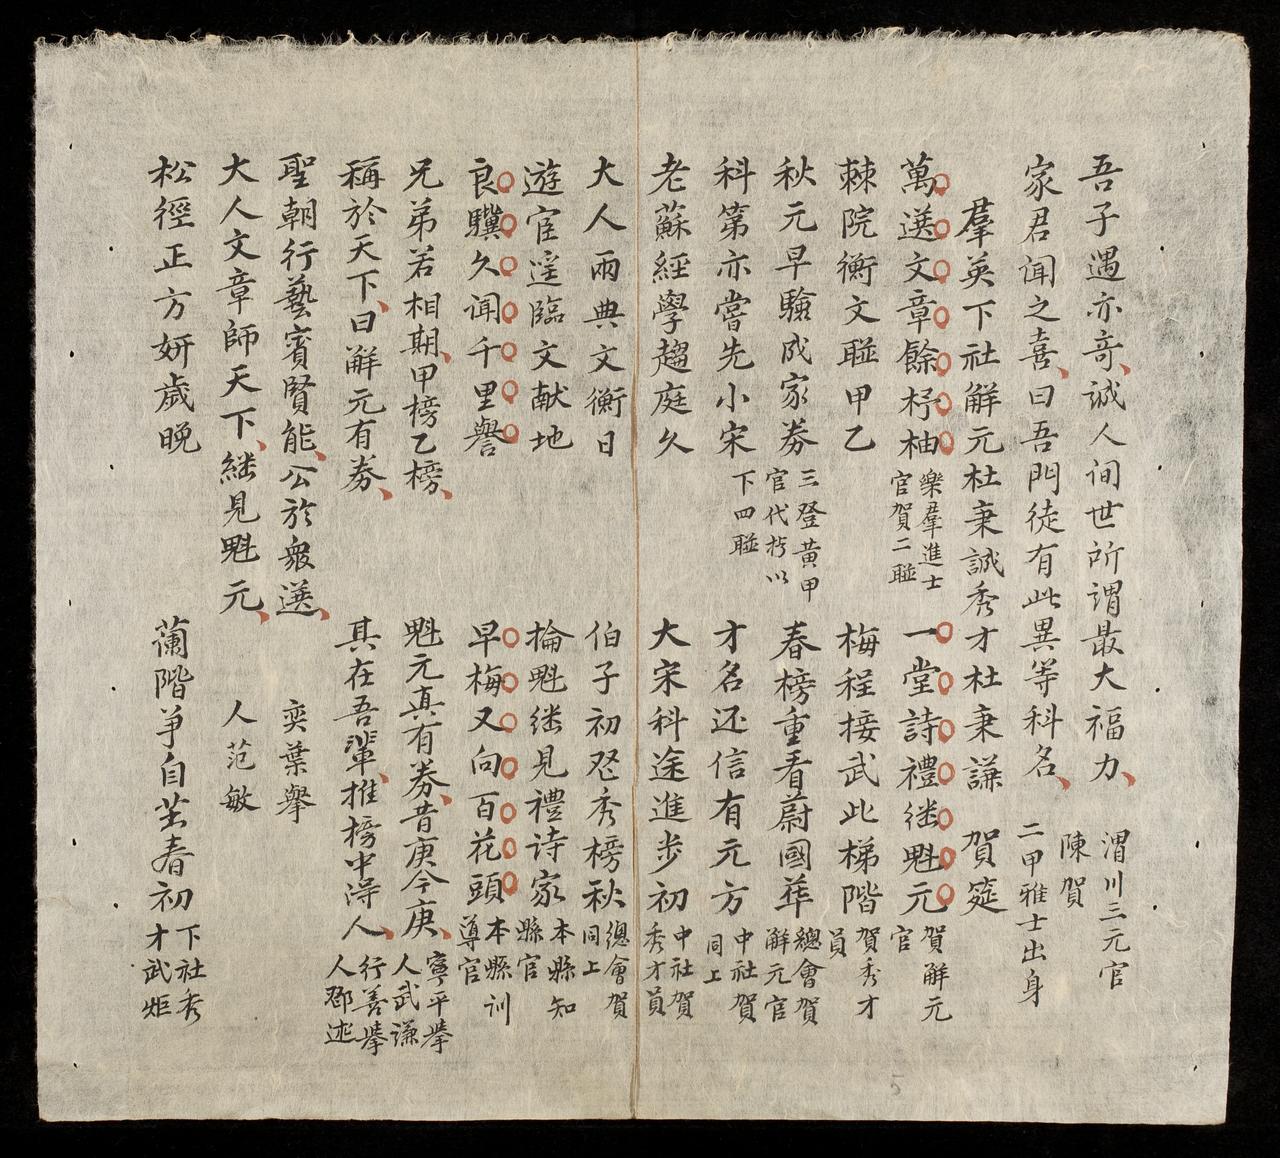 吾子遇亦奇誠人间世所谓最大福力 渭川三元官
陳賀
家君闻之喜曰吾門徒有此異等科名 二甲雅士出身
羣英下社解元杜秉誠秀才杜秉謙 賀筵
萬選文章餘杼柚 樂羣進士官賀二聮 一堂詩禮继魁元 賀解元官
棘院衡文聮甲乙 梅程接武此梯階 賀秀才員
秋元早驗成家券 三登黃甲官代拧以下四聮 春榜重看蔚國華 總會賀解元官
科第亦當先小宋 才名还信有元方 中社賀同上
老蘇經學趨庭久 大宋科途進步初 中社賀秀才員
大人兩典文衡日 伯子初登秀榜秋 總會賀同上
遊宦遥臨文献地 掄魁继見禮诗家 本縣知縣官
良驥久闻千里譽 早梅又向百花頭 本縣训導官
兄弟若相期甲榜乙榜 魁元真有券昔庚今庚 寧平舉人武谦
稱於天下曰解元有券 其在吾輩推榜中得人 行善舉人鄧述
聖朝行藝賓賢能公於衆選 奕葉舉
大人文章師天下继見魁元 人范敏
松徑正方妍歲晚 蘭階爭自茁春初 下社秀才武炬